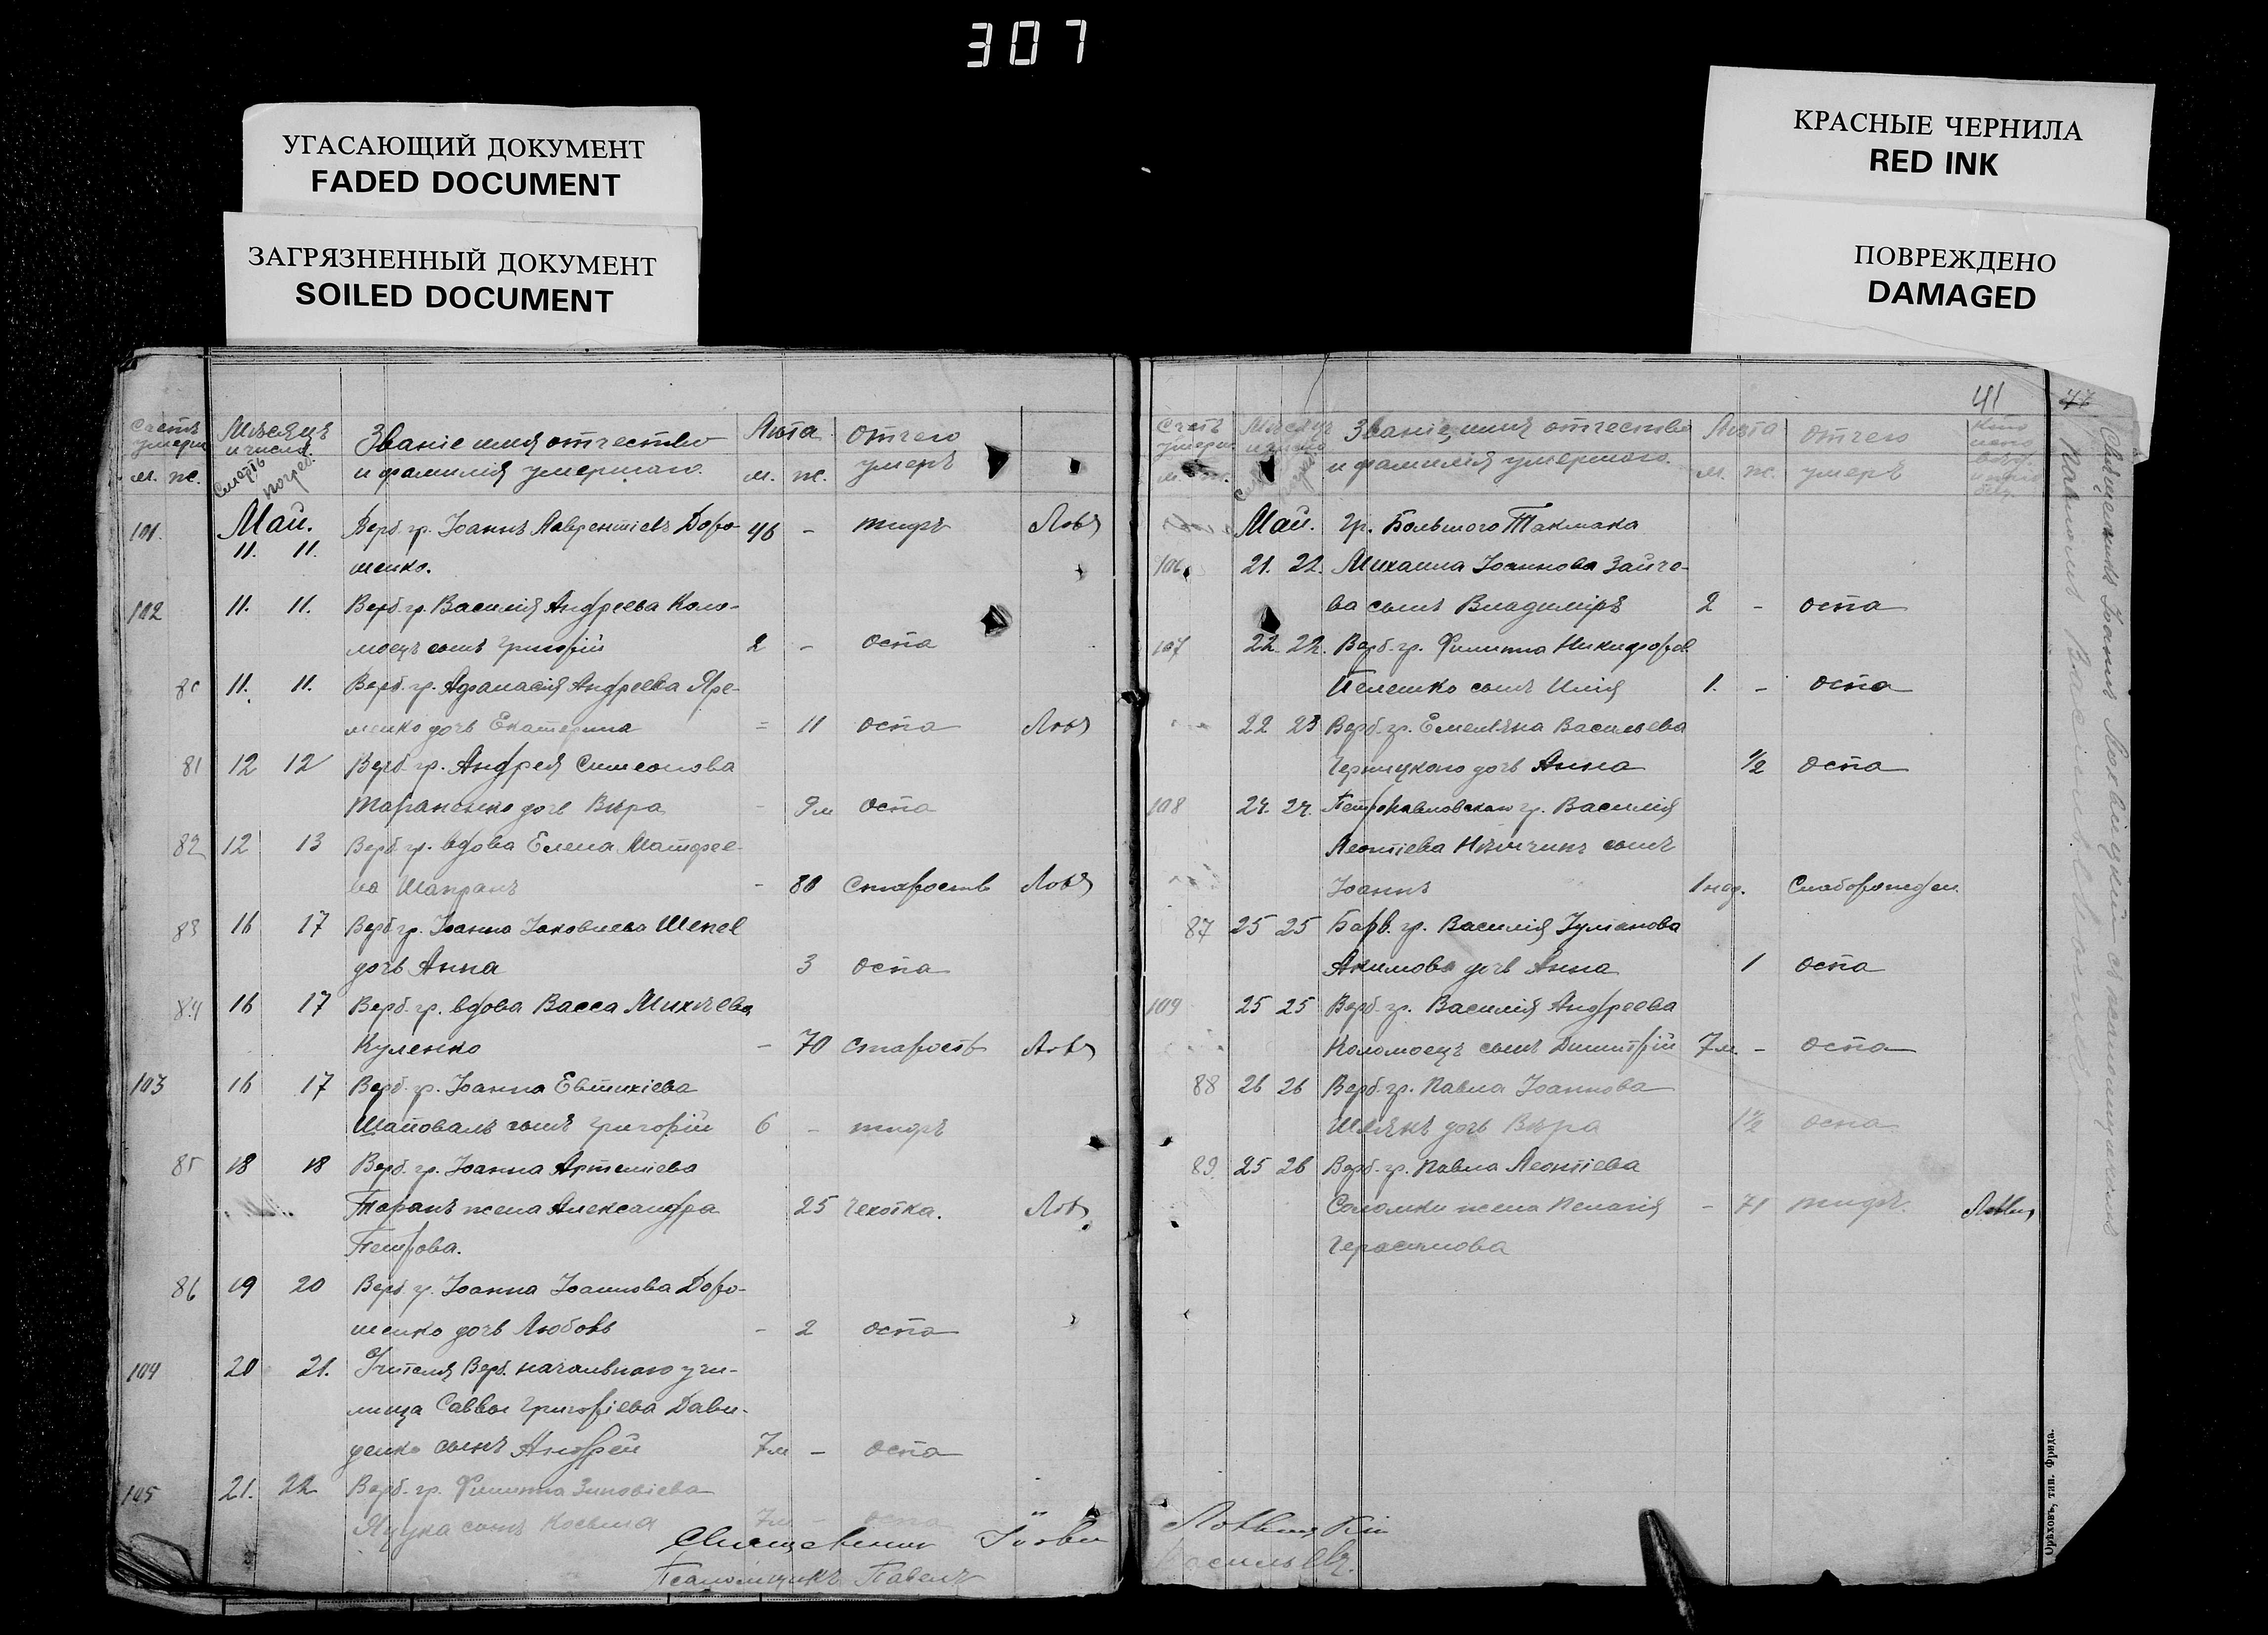 307
УГАСАЮЩИЙ ДОКУМЕНТ
FADED DOCUMENT
ЗАГРЯЗНЕННЫЙ ДОКУМЕНТ
SOILED DOCUMENT
КРАСНЫЕ ЧЕРНИЛА
RED INK
ПОВРЕЖДЕНО
DAMAGED
Счетъ умерш. Мѣсяцъ и число. Званіе имя отчество Лѣта отчего
м. ж. смерть погреб. и фамилія умершаго. м. ж. умеръ
101. Май. Верб. гр. Іоаннъ Лаврентіевъ Доро- 46 - тифъ Ловч
11. 11. шенко.
102 11. 11. Верб. гр. Василія Андреева Коло-
моецъ сынъ Григорій 2 - оспа
80 11. 11. Верб. гр. Афанасія Андреева Яре-
менко дочь Екатерина = 11 оспа Ловч
81 12 12 Верб. гр. Андрея Симеонова
Тараненко дочь Вѣра - 9м оспа
82 12 13 Верб. гр. вдова Елена Матфее-
ва Шапранъ - 80 старость Ловч
83 16 17 Верб. гр. Іоанна Іаковлева Шепел
дочь Анна 3 оспа
84 16 17 Верб. гр. вдова Васса Михѣева
Куленко - 70 старость Ловч
103 16 17 Верб. гр. Іоанна Евтихіева
Шаповалъ сынъ Григорій 6 - тифъ
85 18 18 Верб. гр. Іоанна Артеміева
Таранъ жена Александра 25 чахотка. Ловч
Петрова.
86 19 20 Верб. гр. Іоанна Іоаннова Доро-
шенко дочь Любовь - 2 оспа
104 20 21. Учителя Верб. начальнаго учи-
лища Саввы Григоріева Дави-
денко сынъ Андрей 7м - оспа
105 21. 22 Верб. гр. Филиппа Зиновіева
Яцука сынъ Косьма 7м - оспа
Священникъ Іоан
Псаломщикъ Павелъ
41
47
Счетъ умерш. Мѣсяцъ и число Званіе, имя отчество Лѣта отчего
м. ж. и фамилія умершаго. м. ж. умеръ
Май. гр. Большого Токмака
106 21. 22. Михаила Іоаннова Зайче-
ва сынъ Владиміръ 2 - оспа
107 22. 22. Верб. гр. Филиппа Никифоров.
Пелешко сынъ Илія 1. - оспа
22 23 Верб. гр. Емельяна Васильева
Черницкого дочь Анна 1/2 оспа
108 24. 24. Петропавловскаго гр. Василія
Леонтіева Нѣмчинъ сынъ
Іоаннъ 1 нед. Слаборожден.
87 25 25 Верб. гр. Василія Іуліанова
Акимова дочь Анна 1 оспа
109 25 25 Верб. гр. Василія Андреева
Коломоецъ сынъ Димитрій 7м. - оспа
88 26 26 Верб. гр. Павла Іоаннова
дочь Вѣра 1 1/2 оспа
89 25 26 Верб. гр. Павла Леонтіева
Соломки жена Пелагія - 71 тифъ.
Герасимова
Васильевъ.
Священникъ Іоаннъ съ псаломщикомъ
Павломъ Васильевымъ
Орѣховъ, тип. Фрида.